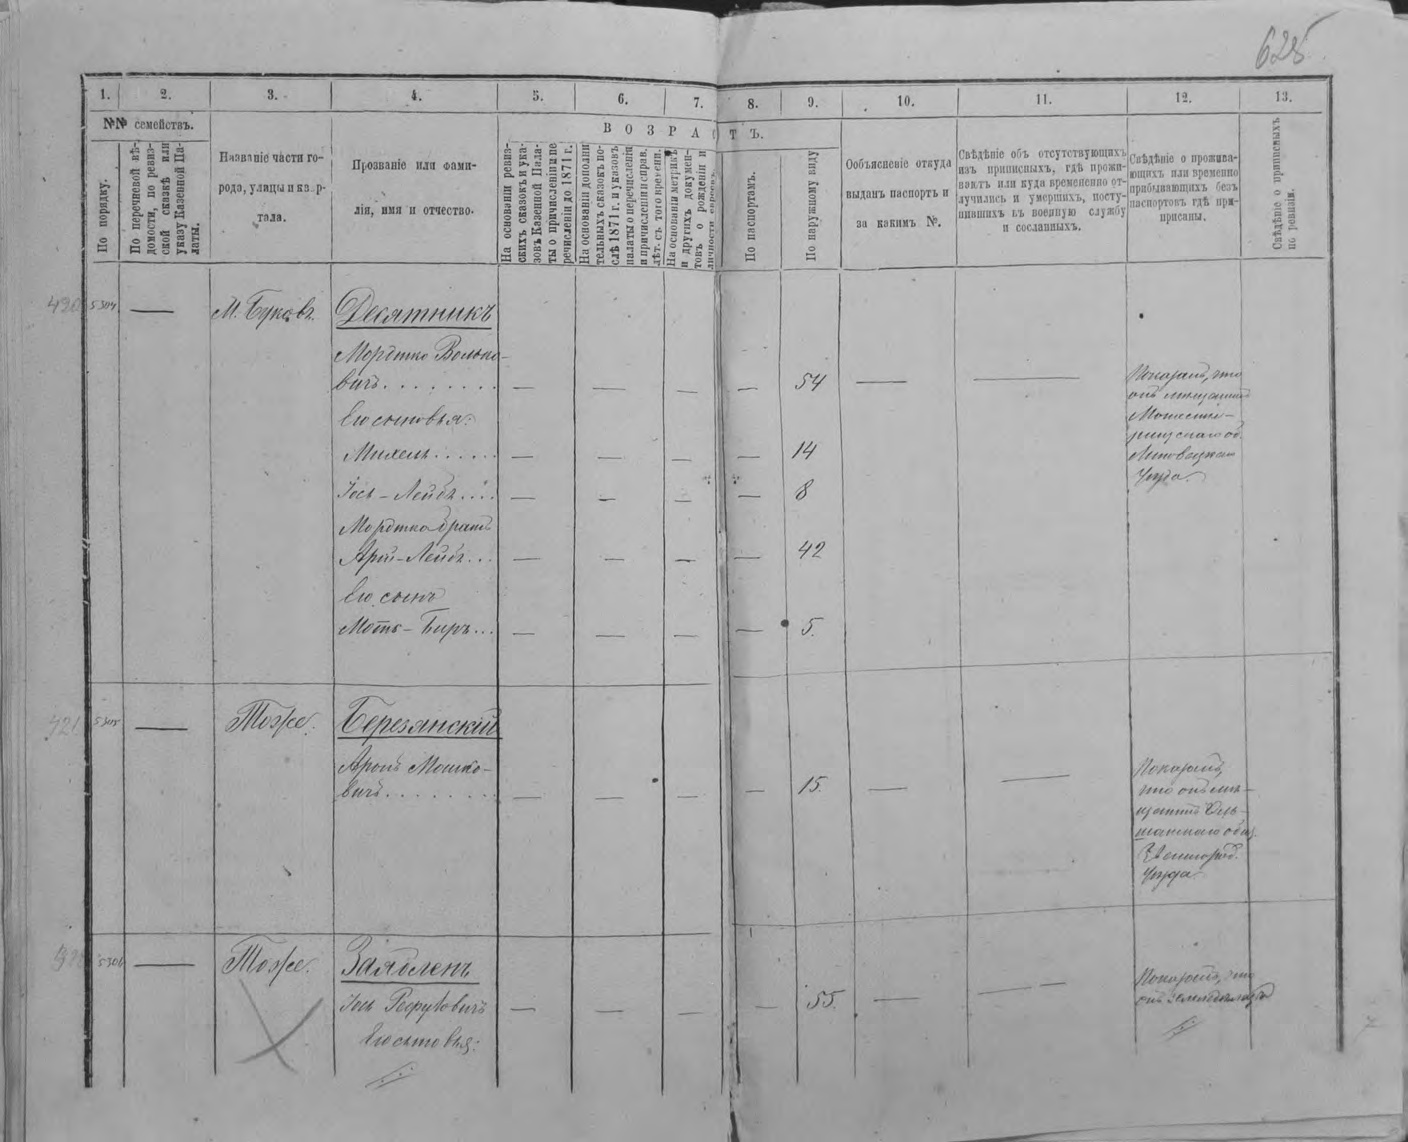 625
1. 2. 3. 4. 5. 6. 7. 8. 9. 10. 11. 12. 13.
№№ семействъ.
По порядку.
По перечневой вѣ-
домости, по ревиз-
ской сказкѣ или
указу Казенной Па-
латы.
Названіе части го-
рода, улицы и квар-
тала.
Прозваніе или фами-
лія, имя и отчество.
ВОЗРАСТЪ.
На основаніи ревиз-
скихъ сказокъ и ука-
зовъ Казенной Пала-
ты о причисленіи и пе
речисленіи до 1871 г.
На основаніи дополни
тельныхъ сказокъ по-
слѣ 1871 г. и указовъ
палаты о перечисленіи
и причисленіи и справ.
лѣт. съ того времени.
На основаніи метрикъ
и другихъ докумен-
товъ о рожденіи и
личности евреевъ.
По паспортамъ.
По наружному виду
Ообъясненіе откуда
выданъ паспортъ и
за какимъ №.
Свѣдѣніе объ отсутствующихъ
изъ приписныхъ, гдѣ прожи-
ваютъ или куда временно от-
лучились и умершихъ, посту-
пившихъ въ военную службу
и сосланныхъ.
Свѣдѣніе о прожива-
ющихъ или временно
прибывающихъ безъ
паспортовъ гдѣ при-
приписаны.
Свѣдѣніе о приписныхъ
по ревизіи.
420 5304 — М. Буковъ. Десятникъ
Мордтко Волько-
вичъ . . . . . . . — — — — 54 — —
Показалъ, что
онъ мѣщанинъ
Монасты-
рищскаго об.
Липовецкаго
Уѣзда.
Его сыновья:
Михель . . . . . — — — — 14
Іось-Лейбъ . . . — — — — 8
Мордтка братъ
Арон-Лейбъ . . . — — — — 42
Его сынъ
Мотя-Биръ . . . — — — — 5.
421 5305 — Тоже. Березянскій
Аронъ Мошко-
вичъ . . . . . . . — — — — 15. — —
Показалъ,
что онъ мѣ-
щанинъ Оль-
шанскаго общ.
Звенигород.
Уѣзда
5306 — Тоже. Заяблень
Іось Рефуловичъ — — — — 55. — —
Показалъ, что
онъ земледѣлецъ
Его сыновья: